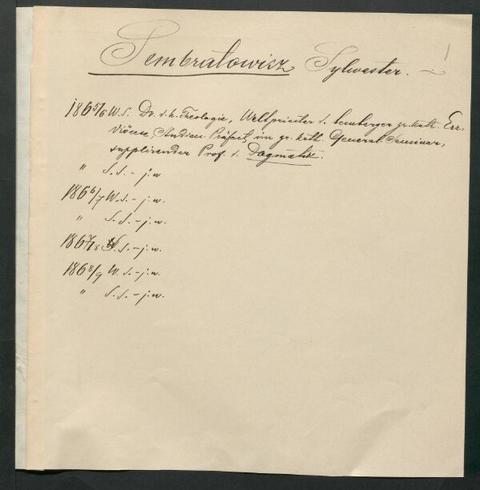 1
Sembratowicz Sylwester.
1865/6 W. S. Dr. d. h. Theologie, Weltpriester d. Lemberger gr. kath. Erz-
diöcese, Studien-Präfect im gr. kath. General-Seminar,
supplirender Prof. d. Dogmatik.
" S. S. - j. w.
1866/7 W. S. - j. w.
" S. S. - j. w.
1867/8 W. S. - j. w.
1868/9 W. S. - j. w.
" S. S. - j. w.